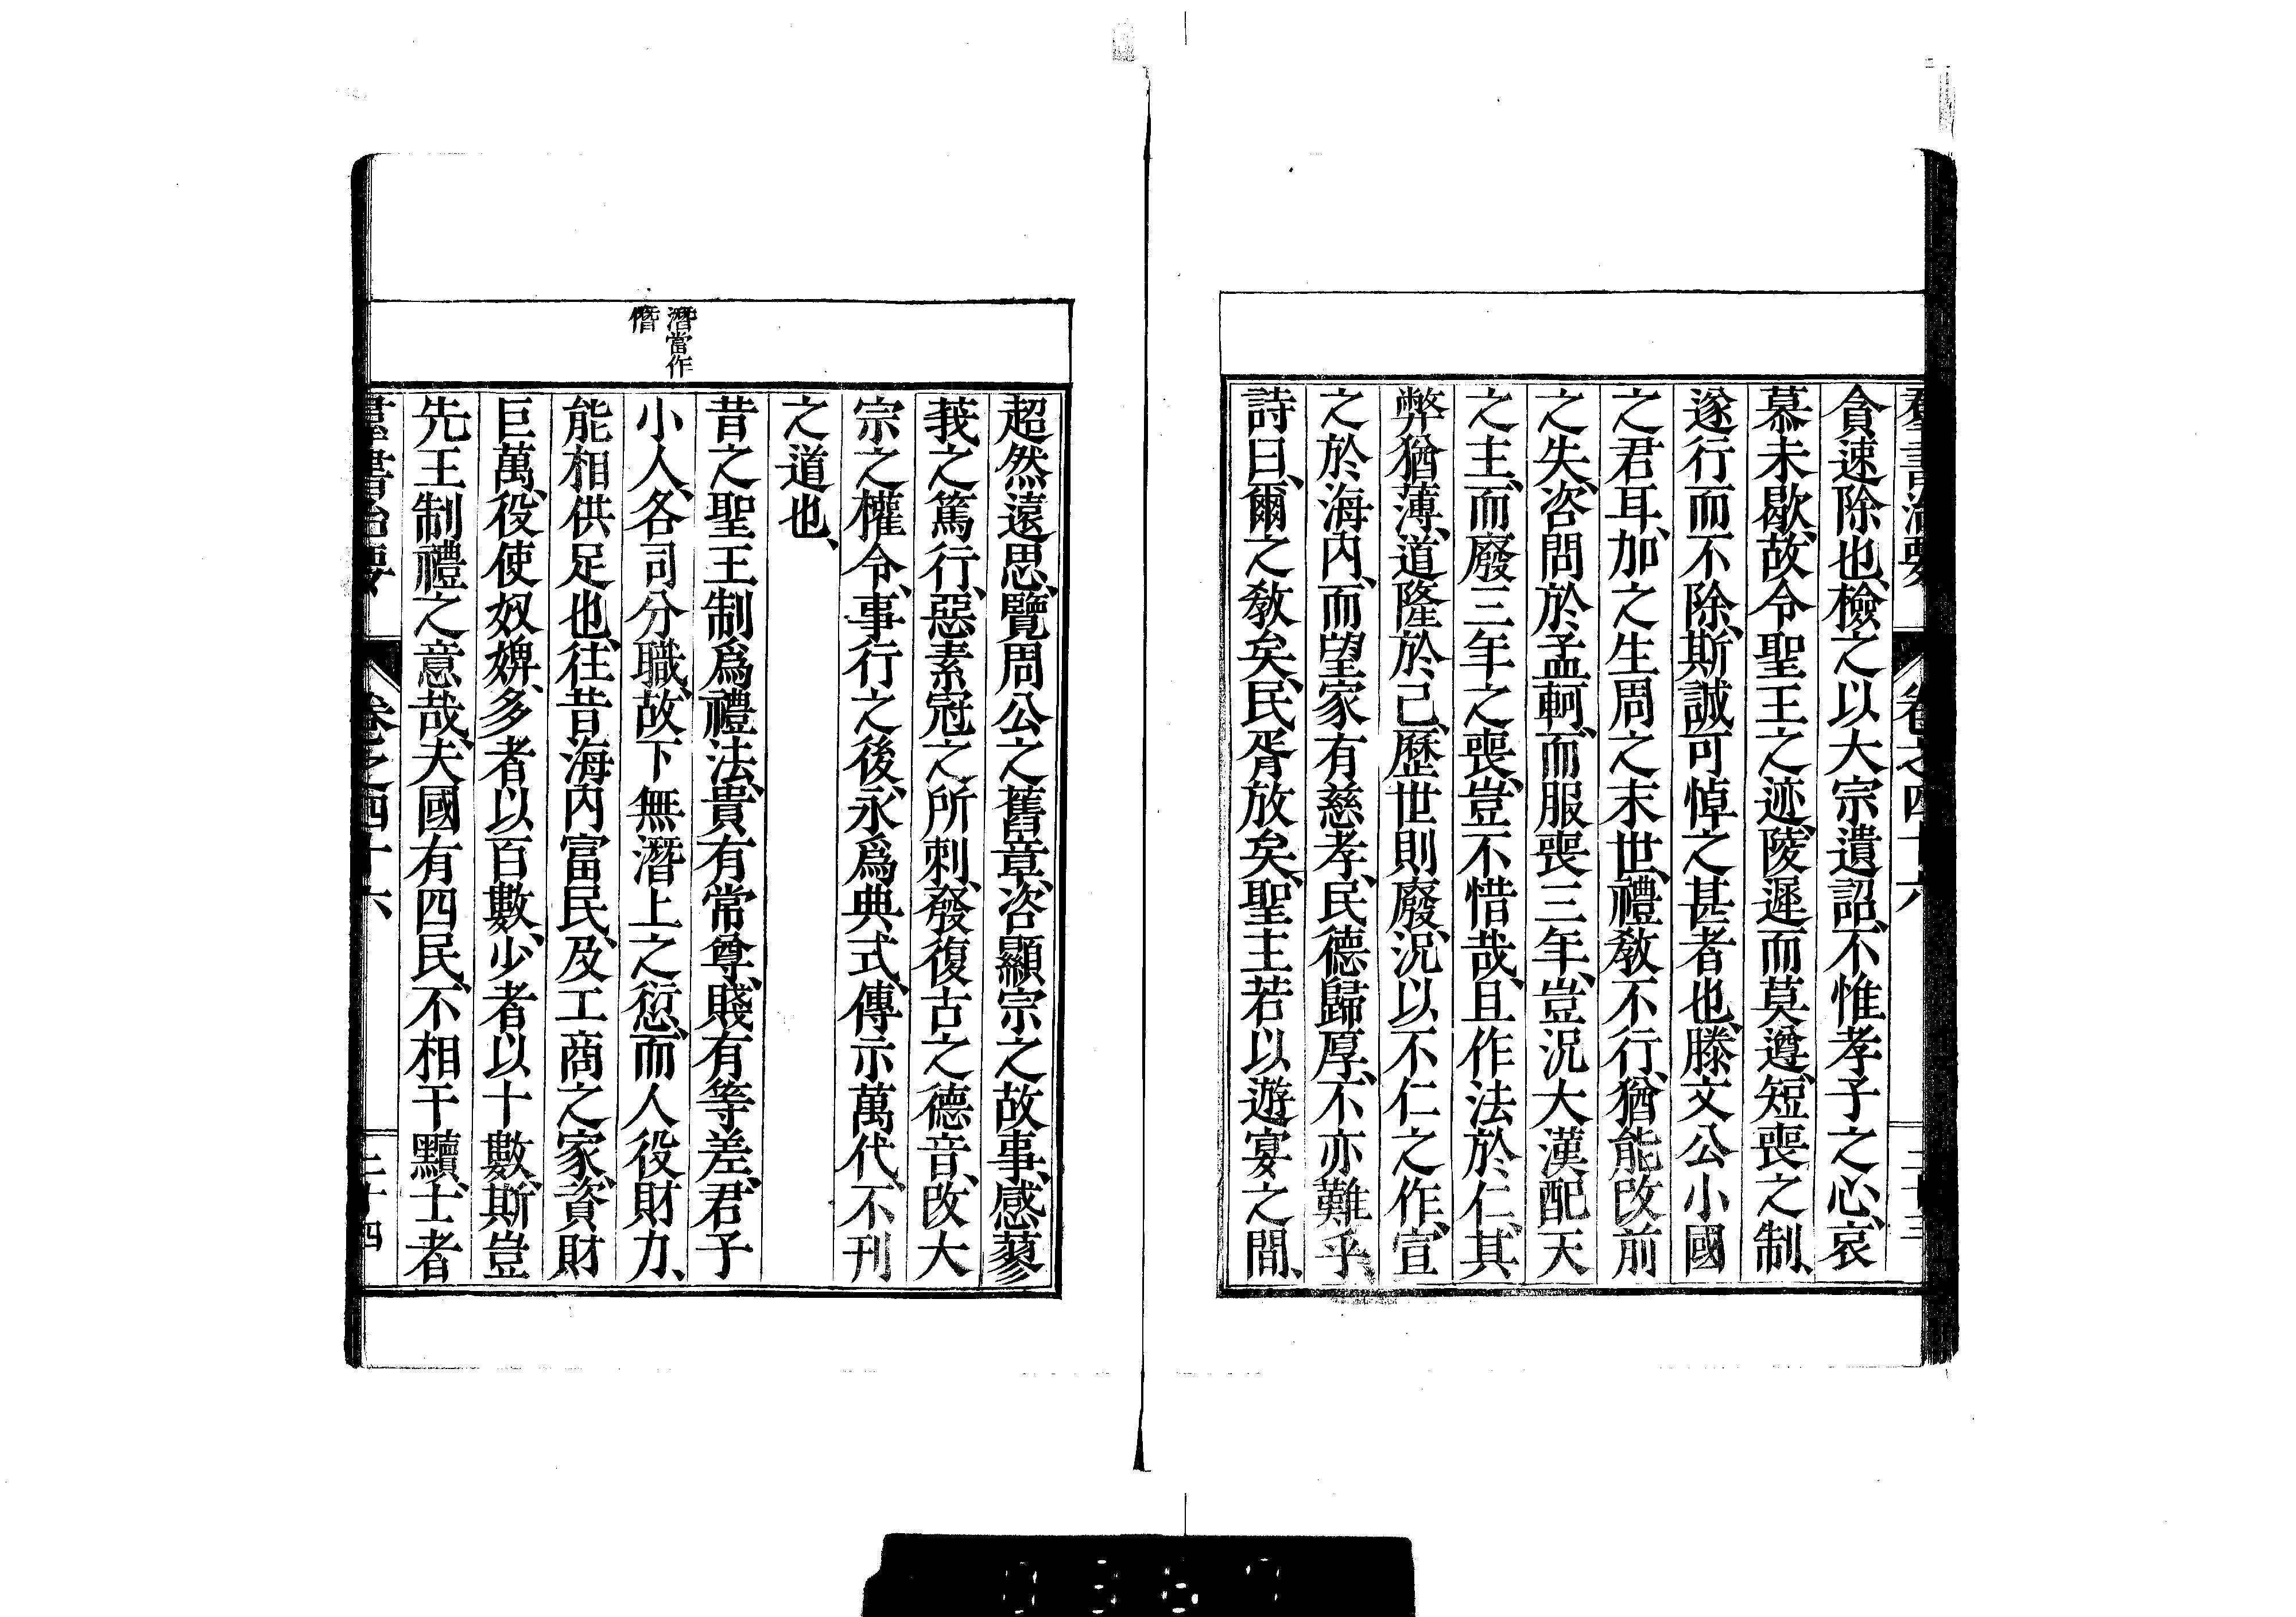 羣書治要 卷之四十六 二十三
貪速除也、檢之以大宗遺詔、不惟孝子之心、哀
慕未歇、故令聖王之迹、陵遲而莫遵、短喪之制、
遂行而不除、斯誠可悼之甚者也、滕文公小國
之君耳、加之生周之末世、禮敎不行、猶能改前
之失、咨問於孟軻、而服喪三年、豈況大漢配天
之主、而廢三年之喪、豈不惜哉、且作法於仁、其
弊猶薄、道隆於己、歷世則廢、況以不仁之作、宣
之於海內、而望家有慈孝、民德歸厚、不亦難乎、
詩曰、爾之敎矣、民胥放矣、聖主若以遊宴之間、
超然遠思、覽周公之舊章、咨顯宗之故事、感蓼
莪之篤行、惡素冠之所刺、發復古之德音、改大
宗之權令、事行之後、永爲典式、傳示萬代、不刊
之道也、
昔之聖王制爲禮法、貴有常尊、賤有等差、君子
小人、各司分職、故下無潛上之愆、而人役財力、
能相供足也、往昔海內富民、及工商之家、資財
巨萬、役使奴婢、多者以百數、少者以十數、斯豈
先王制禮之意哉、夫國有四民、不相干黷、士者
潛當作
僭
羣書治要 卷之四十六 二十四